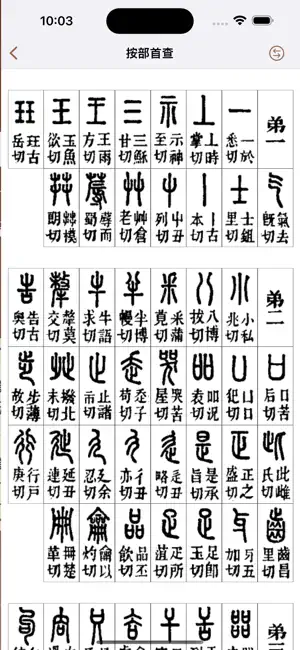 10:03
按部首查
弟一
一於悉切
丄時掌切
示神至切
三穌甘切
王雨方切
玉魚欲切
玨古岳切
气去旣切
士鉏里切
丨古本切
屮丑列切
艸倉老切
蓐而蜀切
茻模朗切
弟二
小私兆切
八博拔切
釆蒲莧切
半博幔切
牛語求切
犛莫交切
告古奧切
口苦后切
凵口犯切
吅況袁切
哭苦屋切
走子苟切
止諸市切
癶北末切
步薄故切
此雌氏切
正之盛切
是承旨切
辵丑略切
彳丑亦切
廴余忍切
㢟丑連切
行戶庚切
齒昌里切
牙五加切
足即玉切
疋所切
品丕飲切
龠以灼切
冊楚革切
弟三